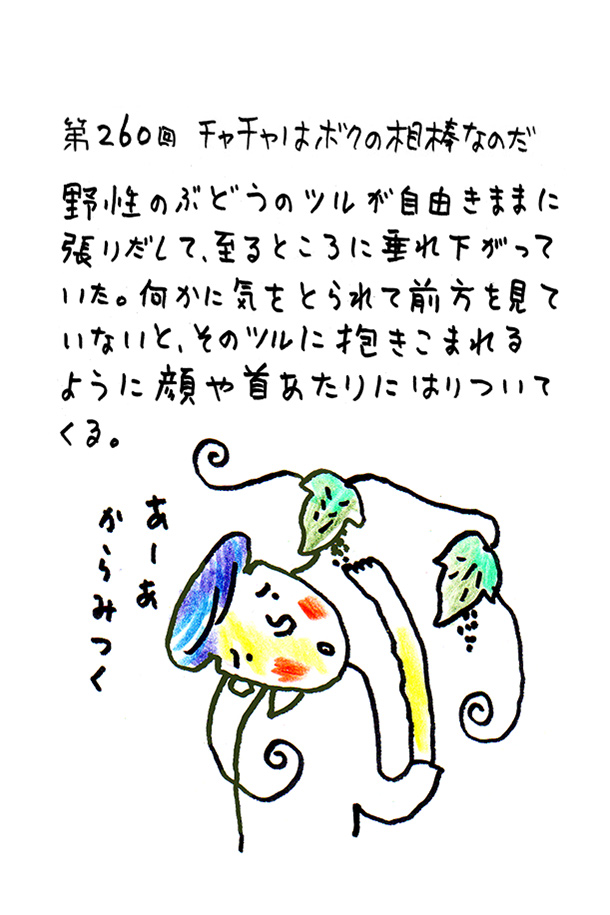 第260回 チャチャはボクの相棒なのだ
野性のぶどうのツルが自由きままに
張りだして、至るところに垂れ下がって
いた。何かに気をとられて前方を見て
いないと、そのツルに抱きこまれる
ように顔や首あたりにはりついて
くる。
あーあ
からみつく